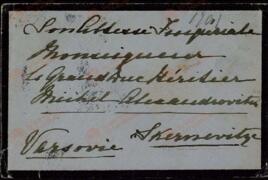 1901
Son Altesse Impériale
Monseigneur
le Grand Duc Héritier
Michel Alexandrovitch
Skernevitze
Varsovie